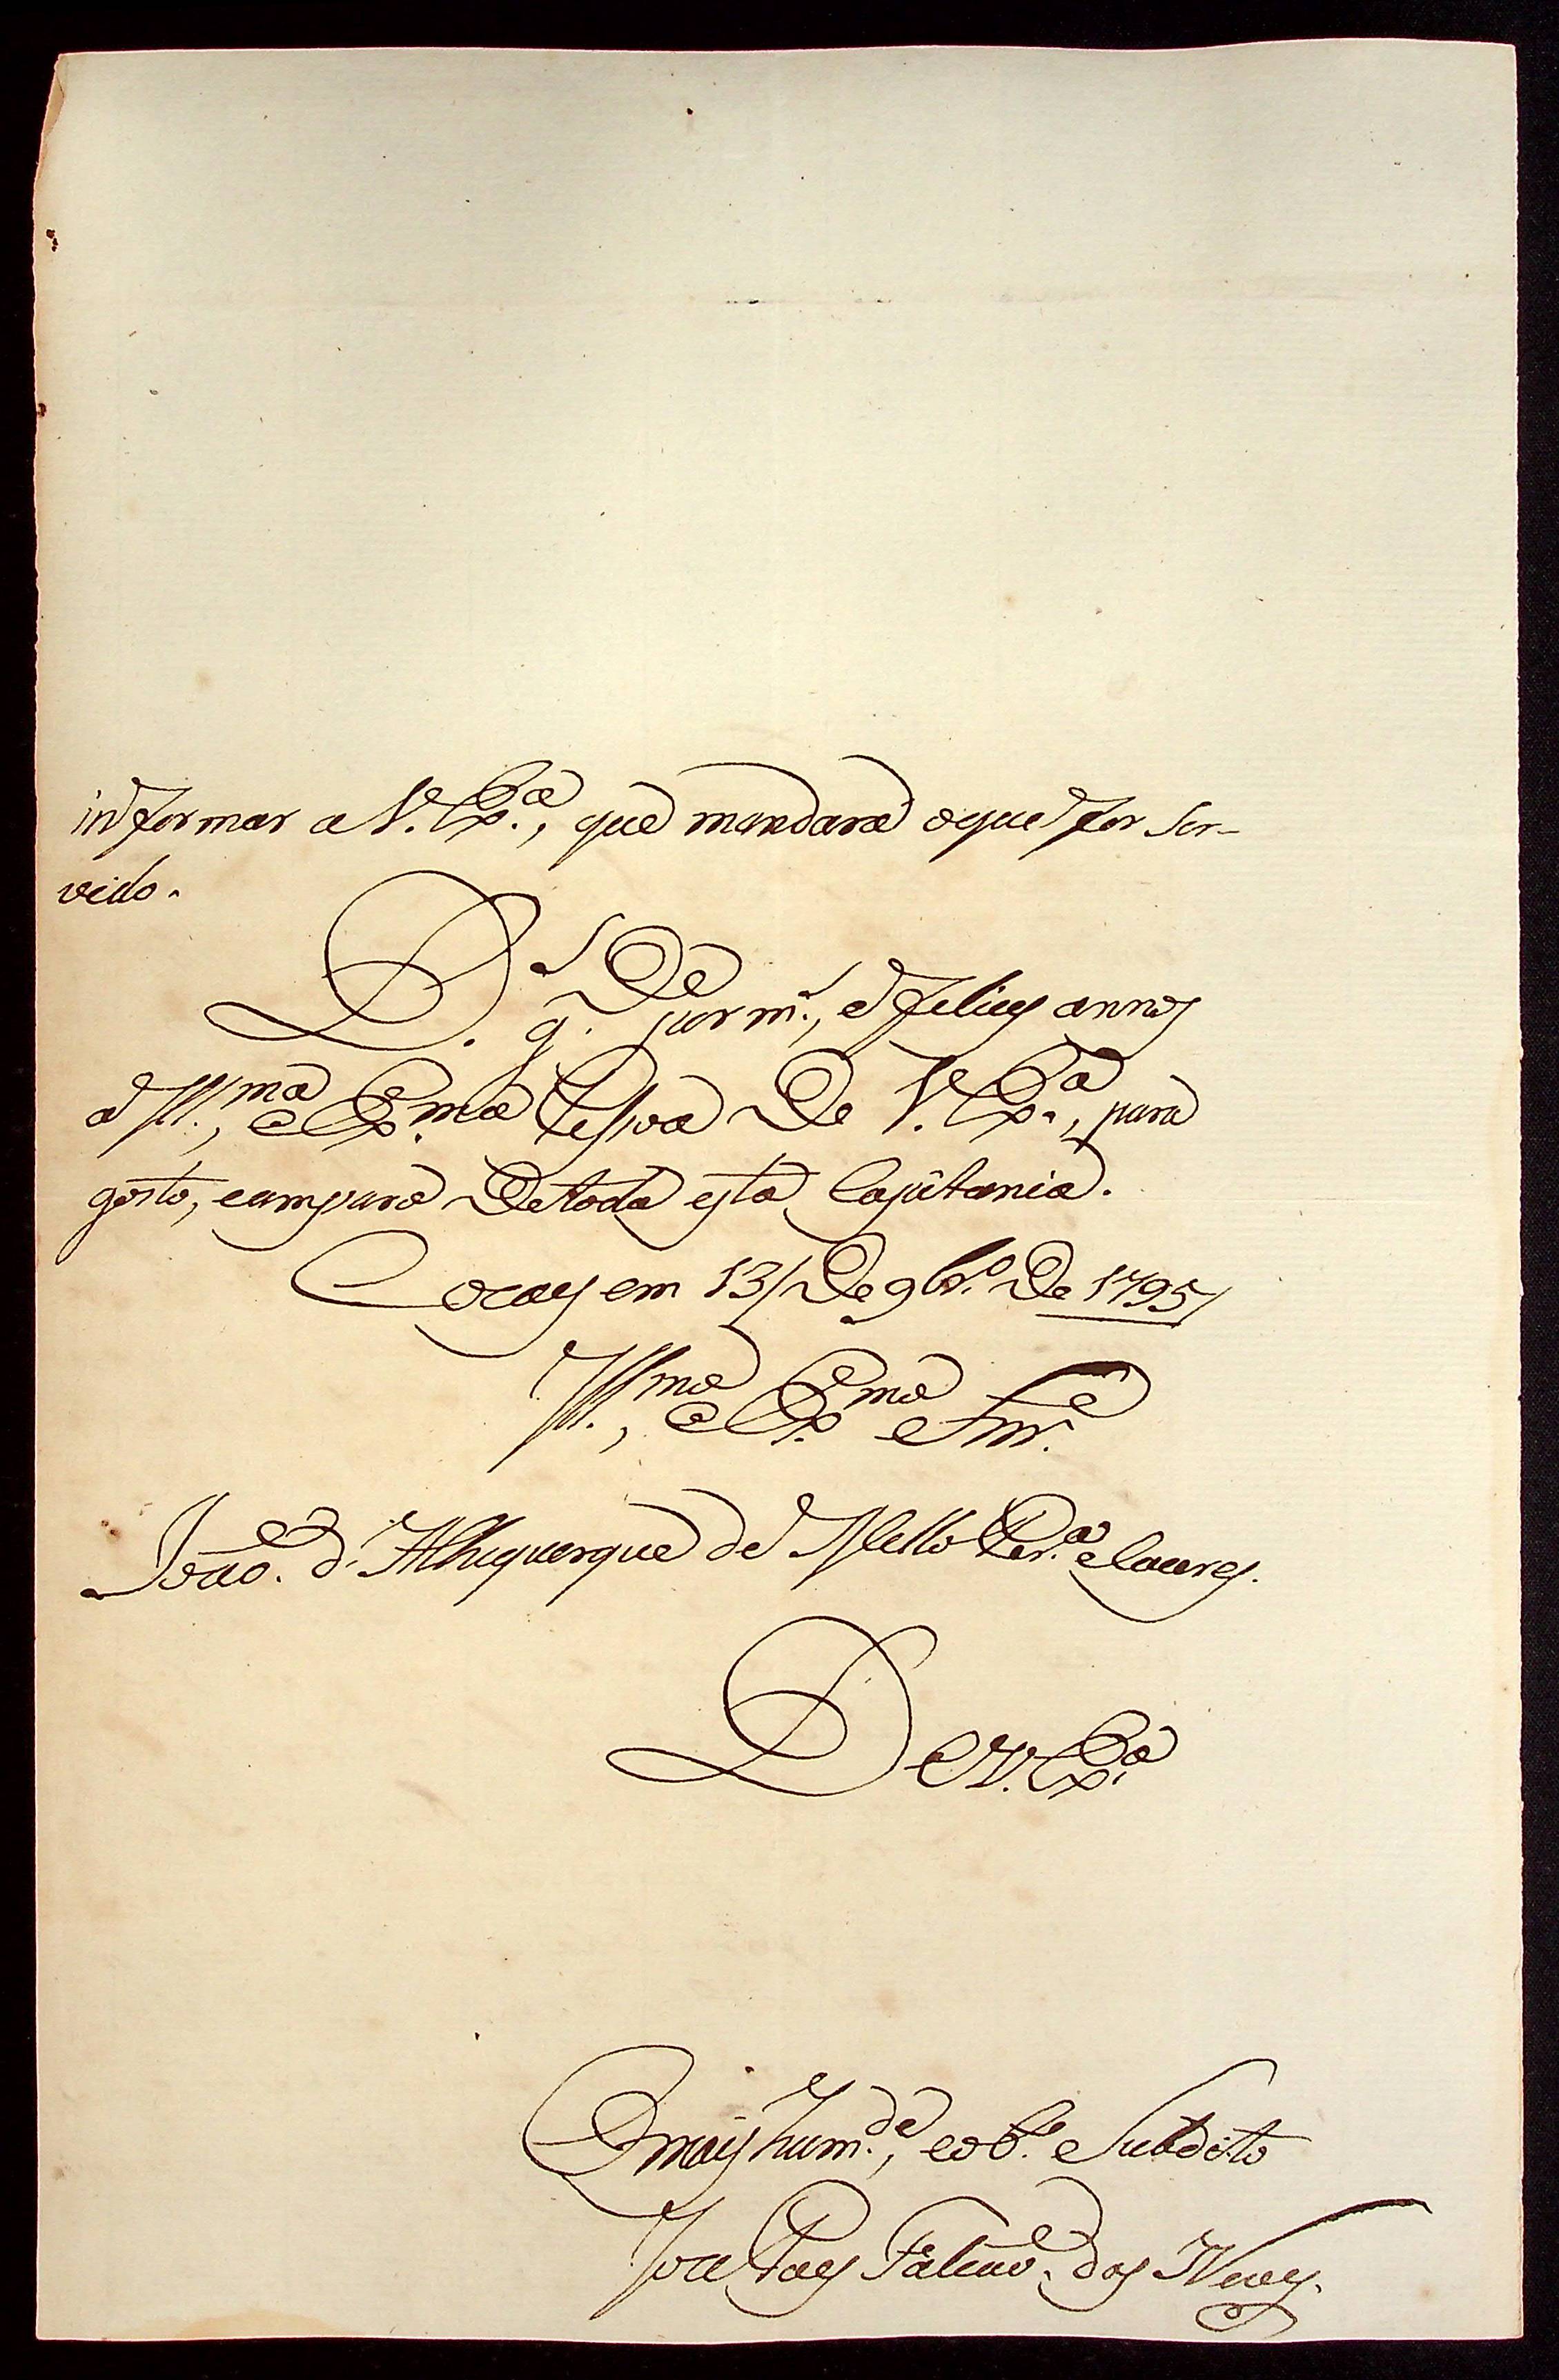 informar a V. Ex.ª, que mandará oque for ser-
vido.
D.s g.de por m.s, e felices annos
a Ill.ma, e Ex.ma Pessoa De V. Ex.ª, para
gosto, eamparo Detoda esta Capitania.
Cocaes em 13 De 9br.o De 1795
Ill.mo, e Ex.mo Snr.
João d'Albuquerque de Mello Per.ª eCaceres.
De V. Ex.ª
O mais hum.de, eob.e Subdito
José Paes Falcaõ das Neves.